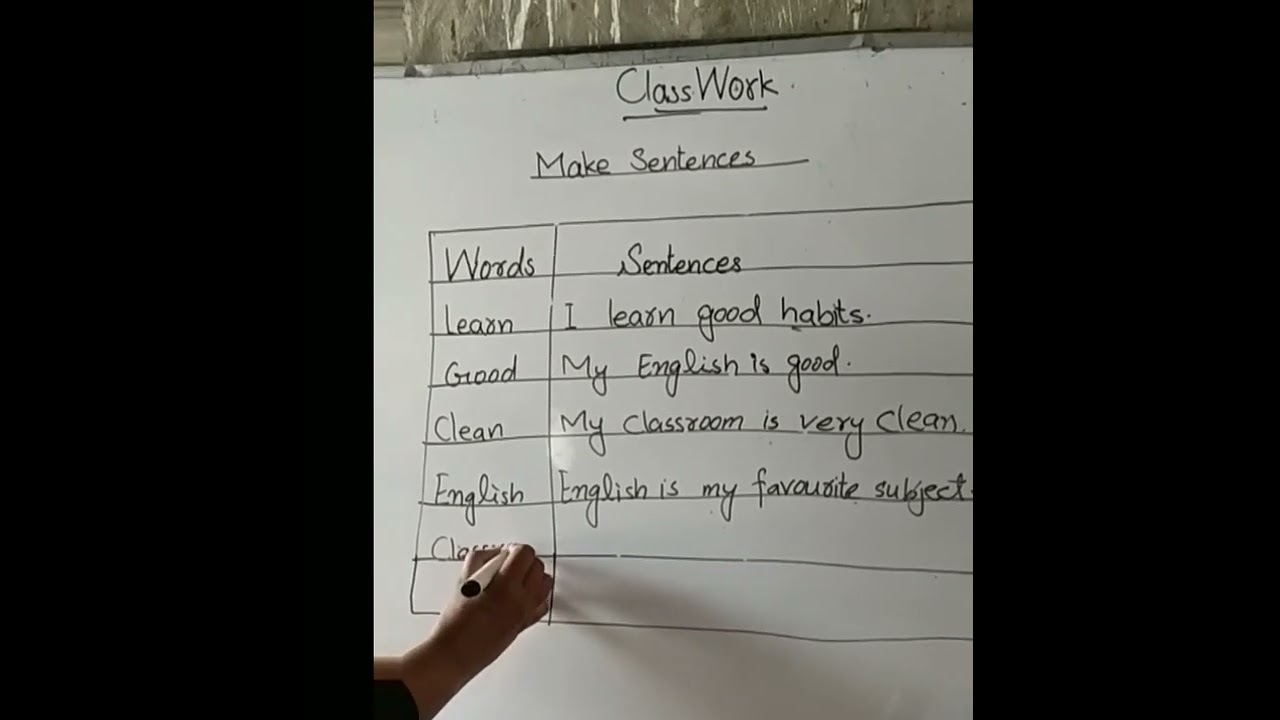 ClassWork
Make Sentences
Words Sentences
Learn I learn good habits.
Good My English is good.
Clean My Classroom is very Clean.
English English is my favourite subject.